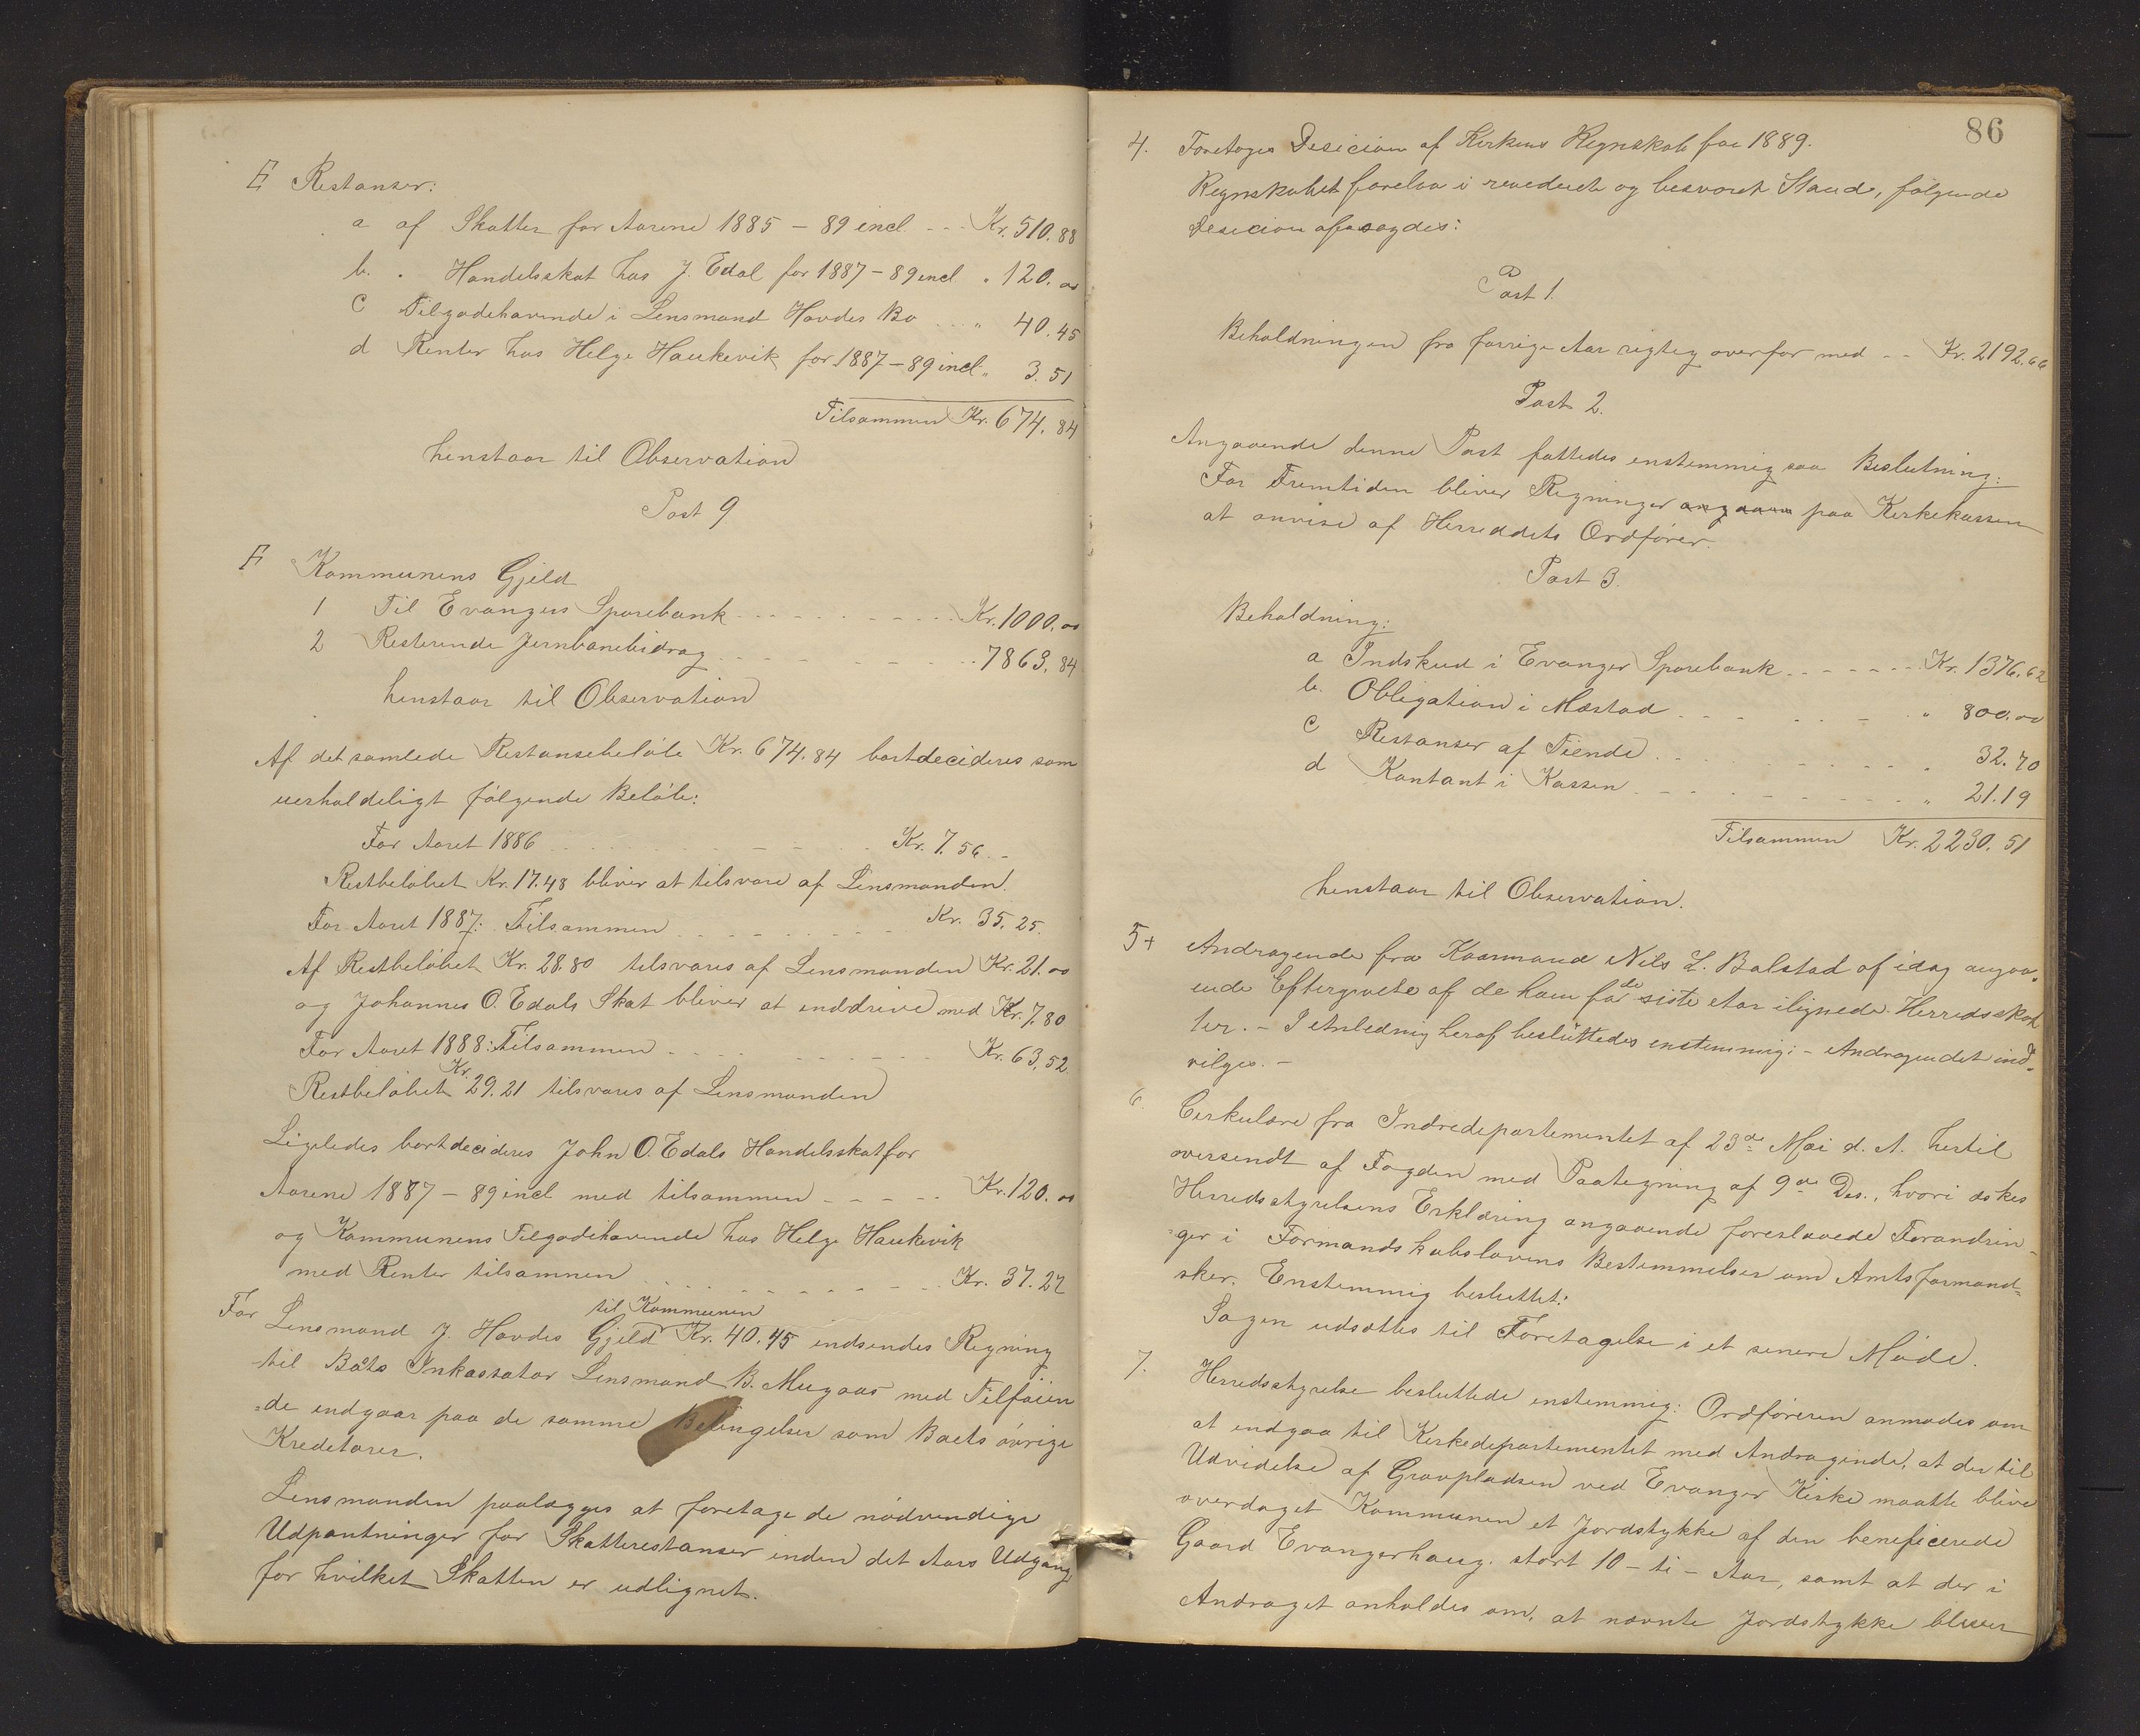 E Restanser:
a af Skatter for Aarene 1885 – 89 incl. - - - Kr. 510.88
b. . Handelsskat hos J. Edal for 1887 – 89 incl „ 120.00
c Tilgodehavende i Lensmand Havdes Bo - - - „ 40.45
d Renter hos Helge Haukevik for 1887 – 89 incl „ 3.51
Tilsammen Kr. 674.84
henstaar til Observation
Post 9
F Kommunens Gjeld
1 Til Evangers Sparebank - - - - - Kr. 1000.00
2 Resterende Jernbanebidrag - - - - - 7863.84
henstaar til Observation
Af det samlede Restansebeløb Kr. 674.84 bortdecideres som
uerholdeligt følgende Beløb:
For Aaret 1886 - - - - - Kr. 7.56 -
Restbeløbet Kr. 17.48 bliver at tilsvare af Lensmanden.
For Aaret 1887: Tilsammen - - - - - Kr. 35.25.
Af Restbeløbet Kr. 28.80 tilsvares af Lensmanden Kr. 21.00
og Johannes O. Edals Skat bliver at inddrive med Kr. 7.80
For Aaret 1888: Tilsammen - - - - - Kr. 63.52
Restbeløbet Kr. 29.21 tilsvares af Lensmanden
Ligeledes bortdecideres John O. Edals Handelsskat for
Aarene 1887 – 89 incl med tilsammen - - - - - Kr. 120.00
og Kommunens Tilgodehavende hos Helge Haukevik
med Renter tilsammen - - - - - Kr. 37.27
For Lensmand J. Havdes Gjeld til Kommunen Kr. 40.45 indsendes Regning
til Boets Inkassator Lensmand B. Mugaas med Tilføien
=de indgaar paa de samme Betingelser som Boets øvrige
Kreditorer.
Lensmanden paalægges at foretage de nødvendige
Udpantninger for Skatterestanser inden det Aars Udgang
for hvilket Skatten er udlignet.
86
4. Foretoges Desicion af Kirkens Regnskab for 1889.
Regnskabet forelaa i revederet og besvaret Stand, følgende
Desicion afsagdes:
Post 1.
Beholdningen fra forrige Aar rigtig overfør med - - Kr. 2192.66
Post 2.
Angaaende denne Post fattedes enstemmig saa Beslutning:
For Fremtiden bliver Regninger angaaen paa Kirkekassen
at anvise af Herreddets Ordfører.
Post 3.
Beholdning:
a Indskud i Evanger Sparebank - - - - - Kr. 1376.62
b. Obligation i Mæstad - - - - - „ 800.00
c Restanser af Tiende - - - - - „ 32.70
d Kontant i Kassen - - - - - „ 21.19
Tilsammen Kr. 2230.51
henstaar til Observation.
5+ Andragende fra Kaarmand Nils L. Bolstad af idag angaa-
ende Eftergivelse af de ham for de siste Aar ilignede Herredsskat
ter. – I Anledning heraf besluttedes enstemmig: – Andragendet ind-
vilges. –
6 Cirkulære fra Indredepartementet af 23de Mai d. A. hertil
oversendt af Fogden med Paategning af 9de Ds., hvori æskes
Herredsstyrelsens Erklæring angaaende foreslaaede Forandrin-
=ger i Formandskabslovens Bestemmelser om Amtsformand=
sker. Enstemmig besluttet:
Sagen udsættes til Foretagelse i et senere Møde.
7. Herredsstyrelse besluttede enstemmig: Ordføreren anmodes om
at indgaa til Kirkedepartementet med Andragende, at der til
Udvidelse af Gravpladsen ved Evanger Kirke maatte blive
overdaget Kommunen et Jordstykke af den beneficerede
Gaard Evangerhaug, stort 10 – ti – Aar, samt at der i
Andraget anholdes om, at nævnte Jordstykke bliver